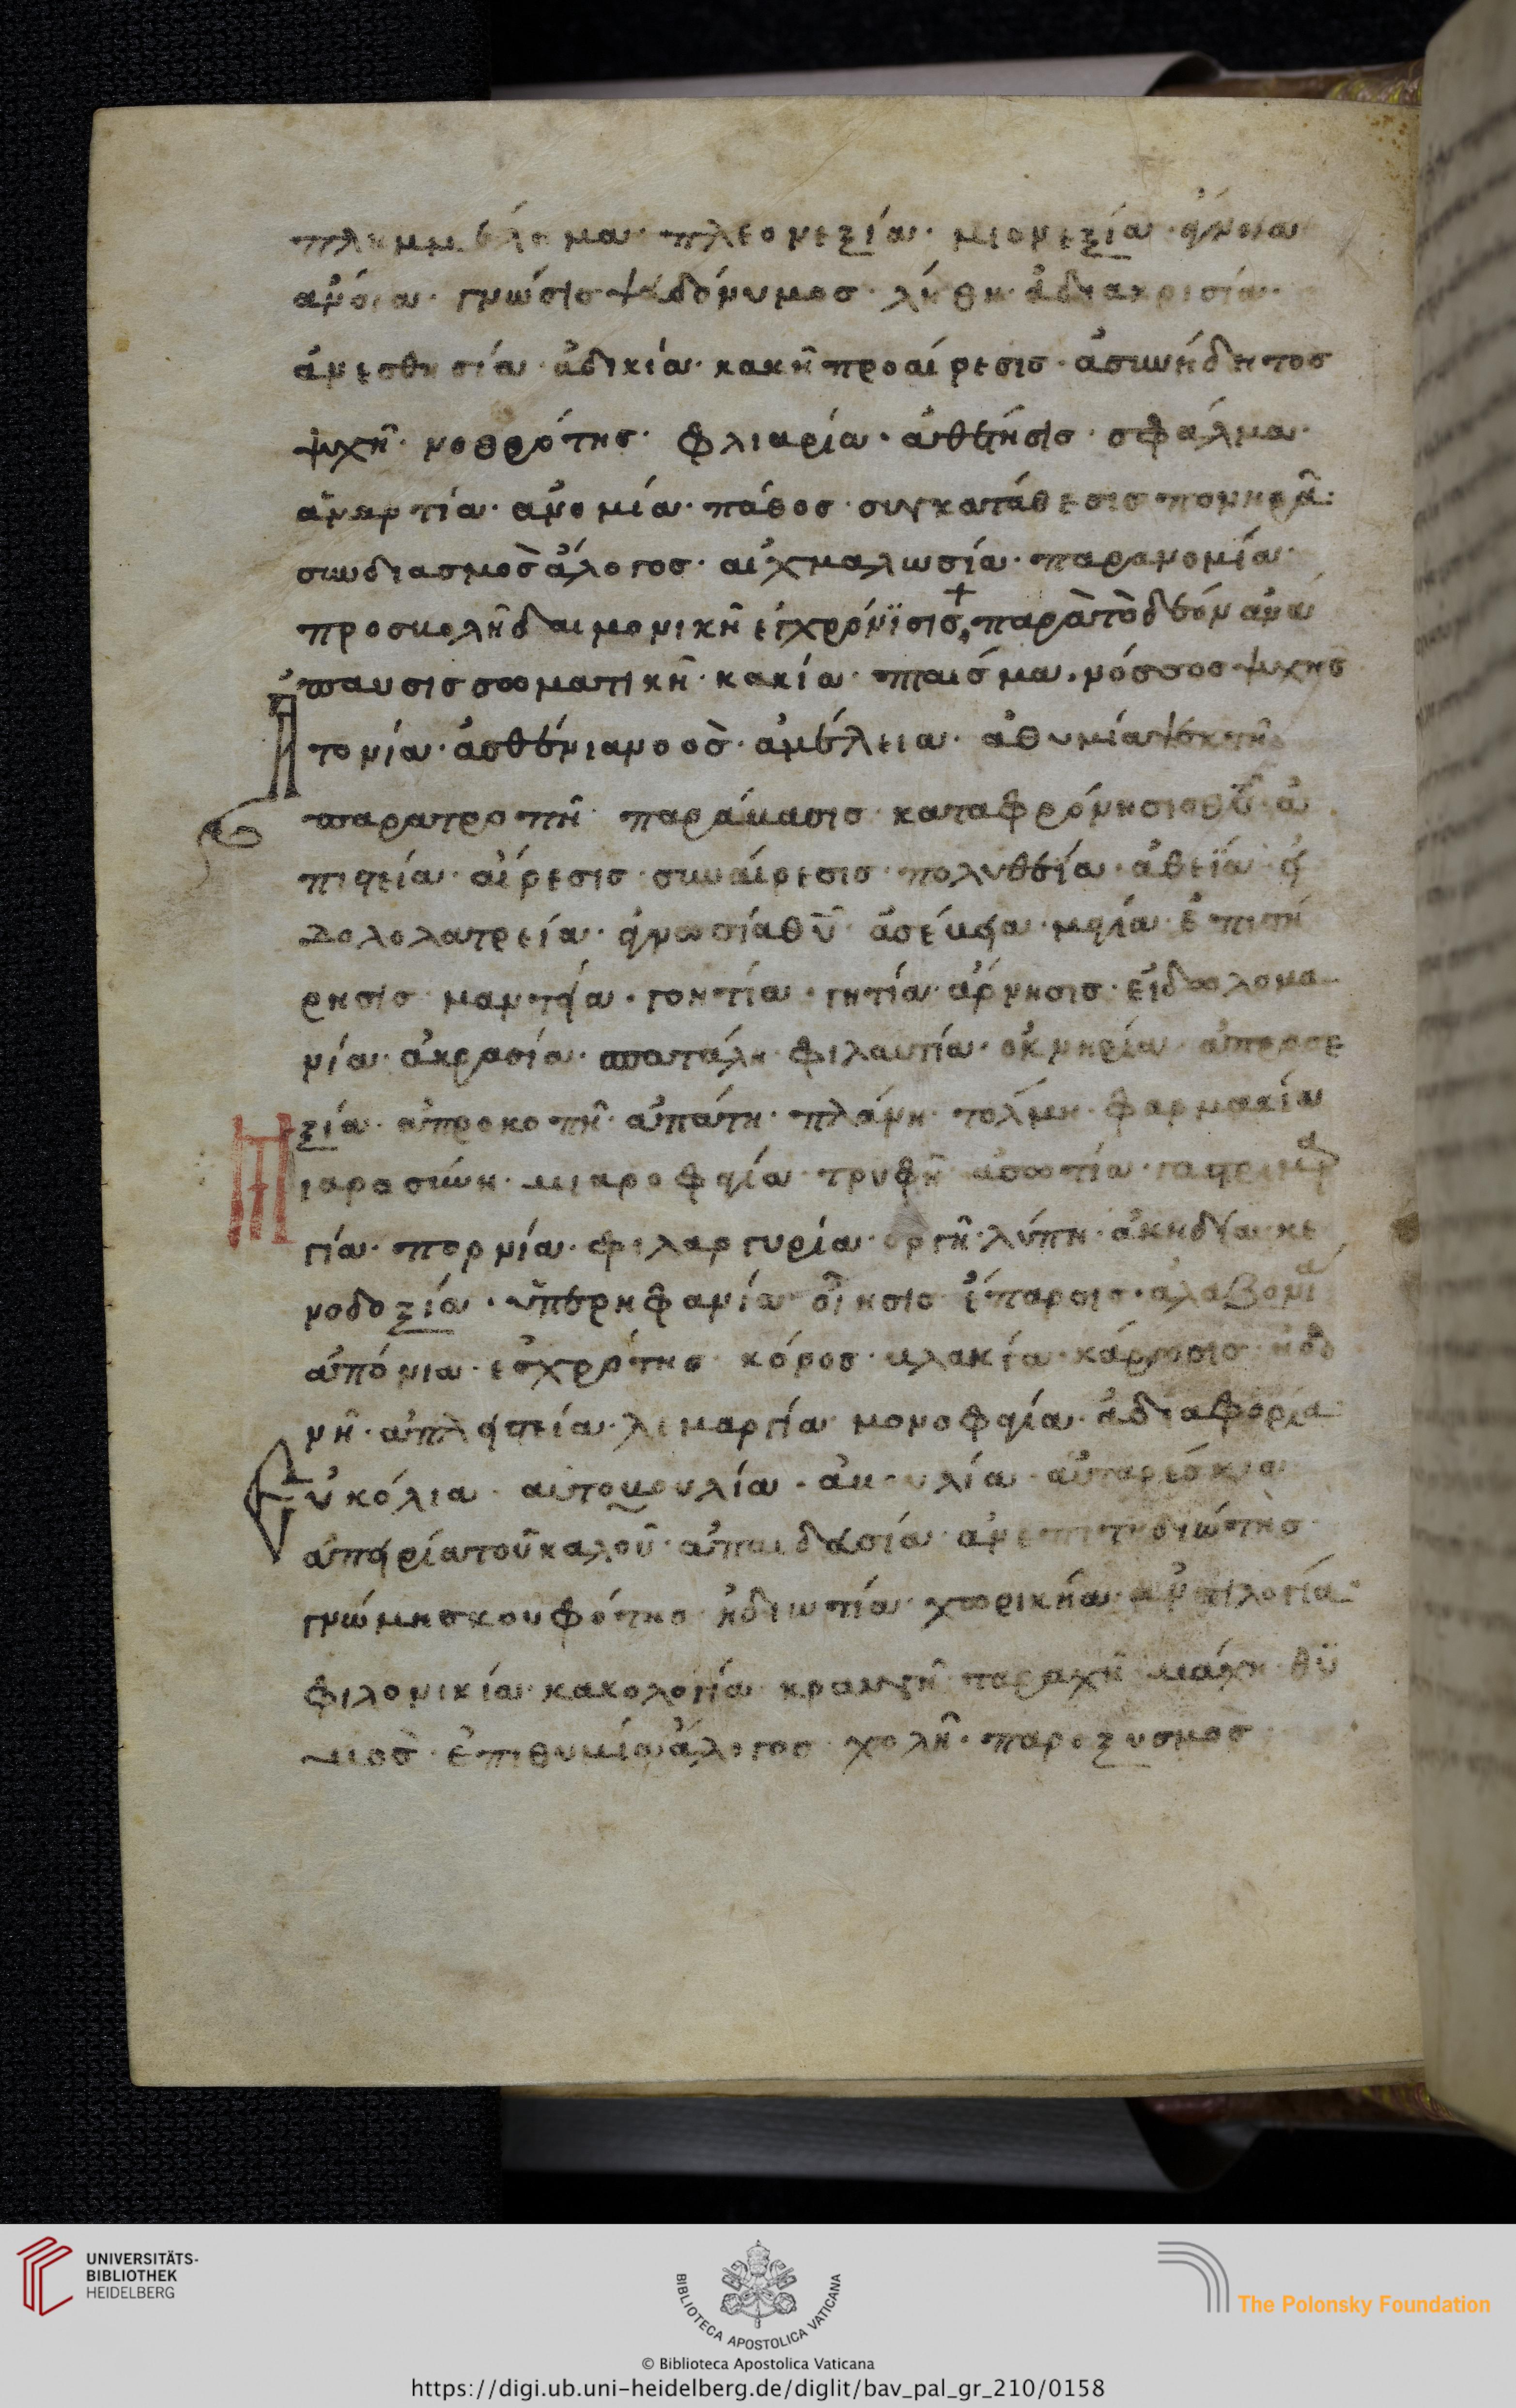 πλημμέλημα· πλεονεξία· μιονεξία·
ἀνόια· γνώσισ ψεδόνυμοσ· λήθη· ἀδιακρισία·
ἀνεσθησία· ἀδικία· κακὴ προαίρεσισ· ἀσυνήδητοσ
ψχὴ· νοθρότησ· φλιαρία· ἀθέτησισ· σφάλμα·
ἁμαρτία· ἀνομία· πάθοσ· συγκατάθεσισ πονηρᾶ:
συνδιασμοσ ἄλογοσ· αἰχμαλωσία· παρανομία·
προσβολῆ δαιμονικῆ ἐγχρόνϊσισ, παρὰ τὸ δέον ἀνά
παυσισ σοοματικῆ· κακία· πταισμα· νόσσοσ ψυχησ
Ατονία· ἀσθένια νοοσ· ἀμέλεια· ἀθυμία
παρατροπῆ· παράβασισ· καταφρόνησισ θῦ· ἀ
πιστία· αἵρεσισ· συναίρεσισ· πολυθεία· ἀθεΐα· εἰ
δολολατρεία· ἀγνωσία θῦ· ἀσέβεια· μαγεία· ἐπιτή
ρησισ· μαντεία· γοητία· γητία· ἄρνησισ· εἰδωλομα
νία· ἀκρασία· σπατάλη· φιλαυτία· ὀκνηρία· ἀπροσε
ξία· ἀπροκοπῆ· ἀπάτη· πλάνη· τόλμη· φαρμακία
Μιαροσύνη· μιαροφαγία· τρυφῆ· ἀσοτία· γαστριμαρ
γία· πορνία· φιλαργυρία· ὀργῆ· λύπη· ἀκηδία· κε
νοδοξία· ὑπερηφανία· οἴησισ· ἔπαρσισ· ἀλαζονία
ἀπόνια· ἐσχρότησ· κόροσ· βλακία· κάρωσισ· ἡδο
νῆ· ἀπληστία· λεμαργία· μονοφαγία· ἀδιαφορία·
Εὐκόλια· αὐτομουλία· ἀβουλία· αὐταρέσκια
ἀπειρία τοῦ καλοῦ· ἀπαιδευσία· ἀνεπιτηδιώτησ·
γνώμησ κουφότησ· ἠδιωτία· χωρικεία· ἀντιλογία·
φιλονικία· κακολογία· κραυγῆ· ταραχῆ· μάχη· θυ
μοσ· ἐπιθυμία ἄλογοσ· χολῆ· παροξυσμοσ
UNIVERSITÄTS-
BIBLIOTHEK
HEIDELBERG
BIBLIOTECA APOSTOLICA VATICANA
The Polonsky Foundation
© Biblioteca Apostolica Vaticana
https://digi.ub.uni-heidelberg.de/diglit/bav_pal_gr_210/0158